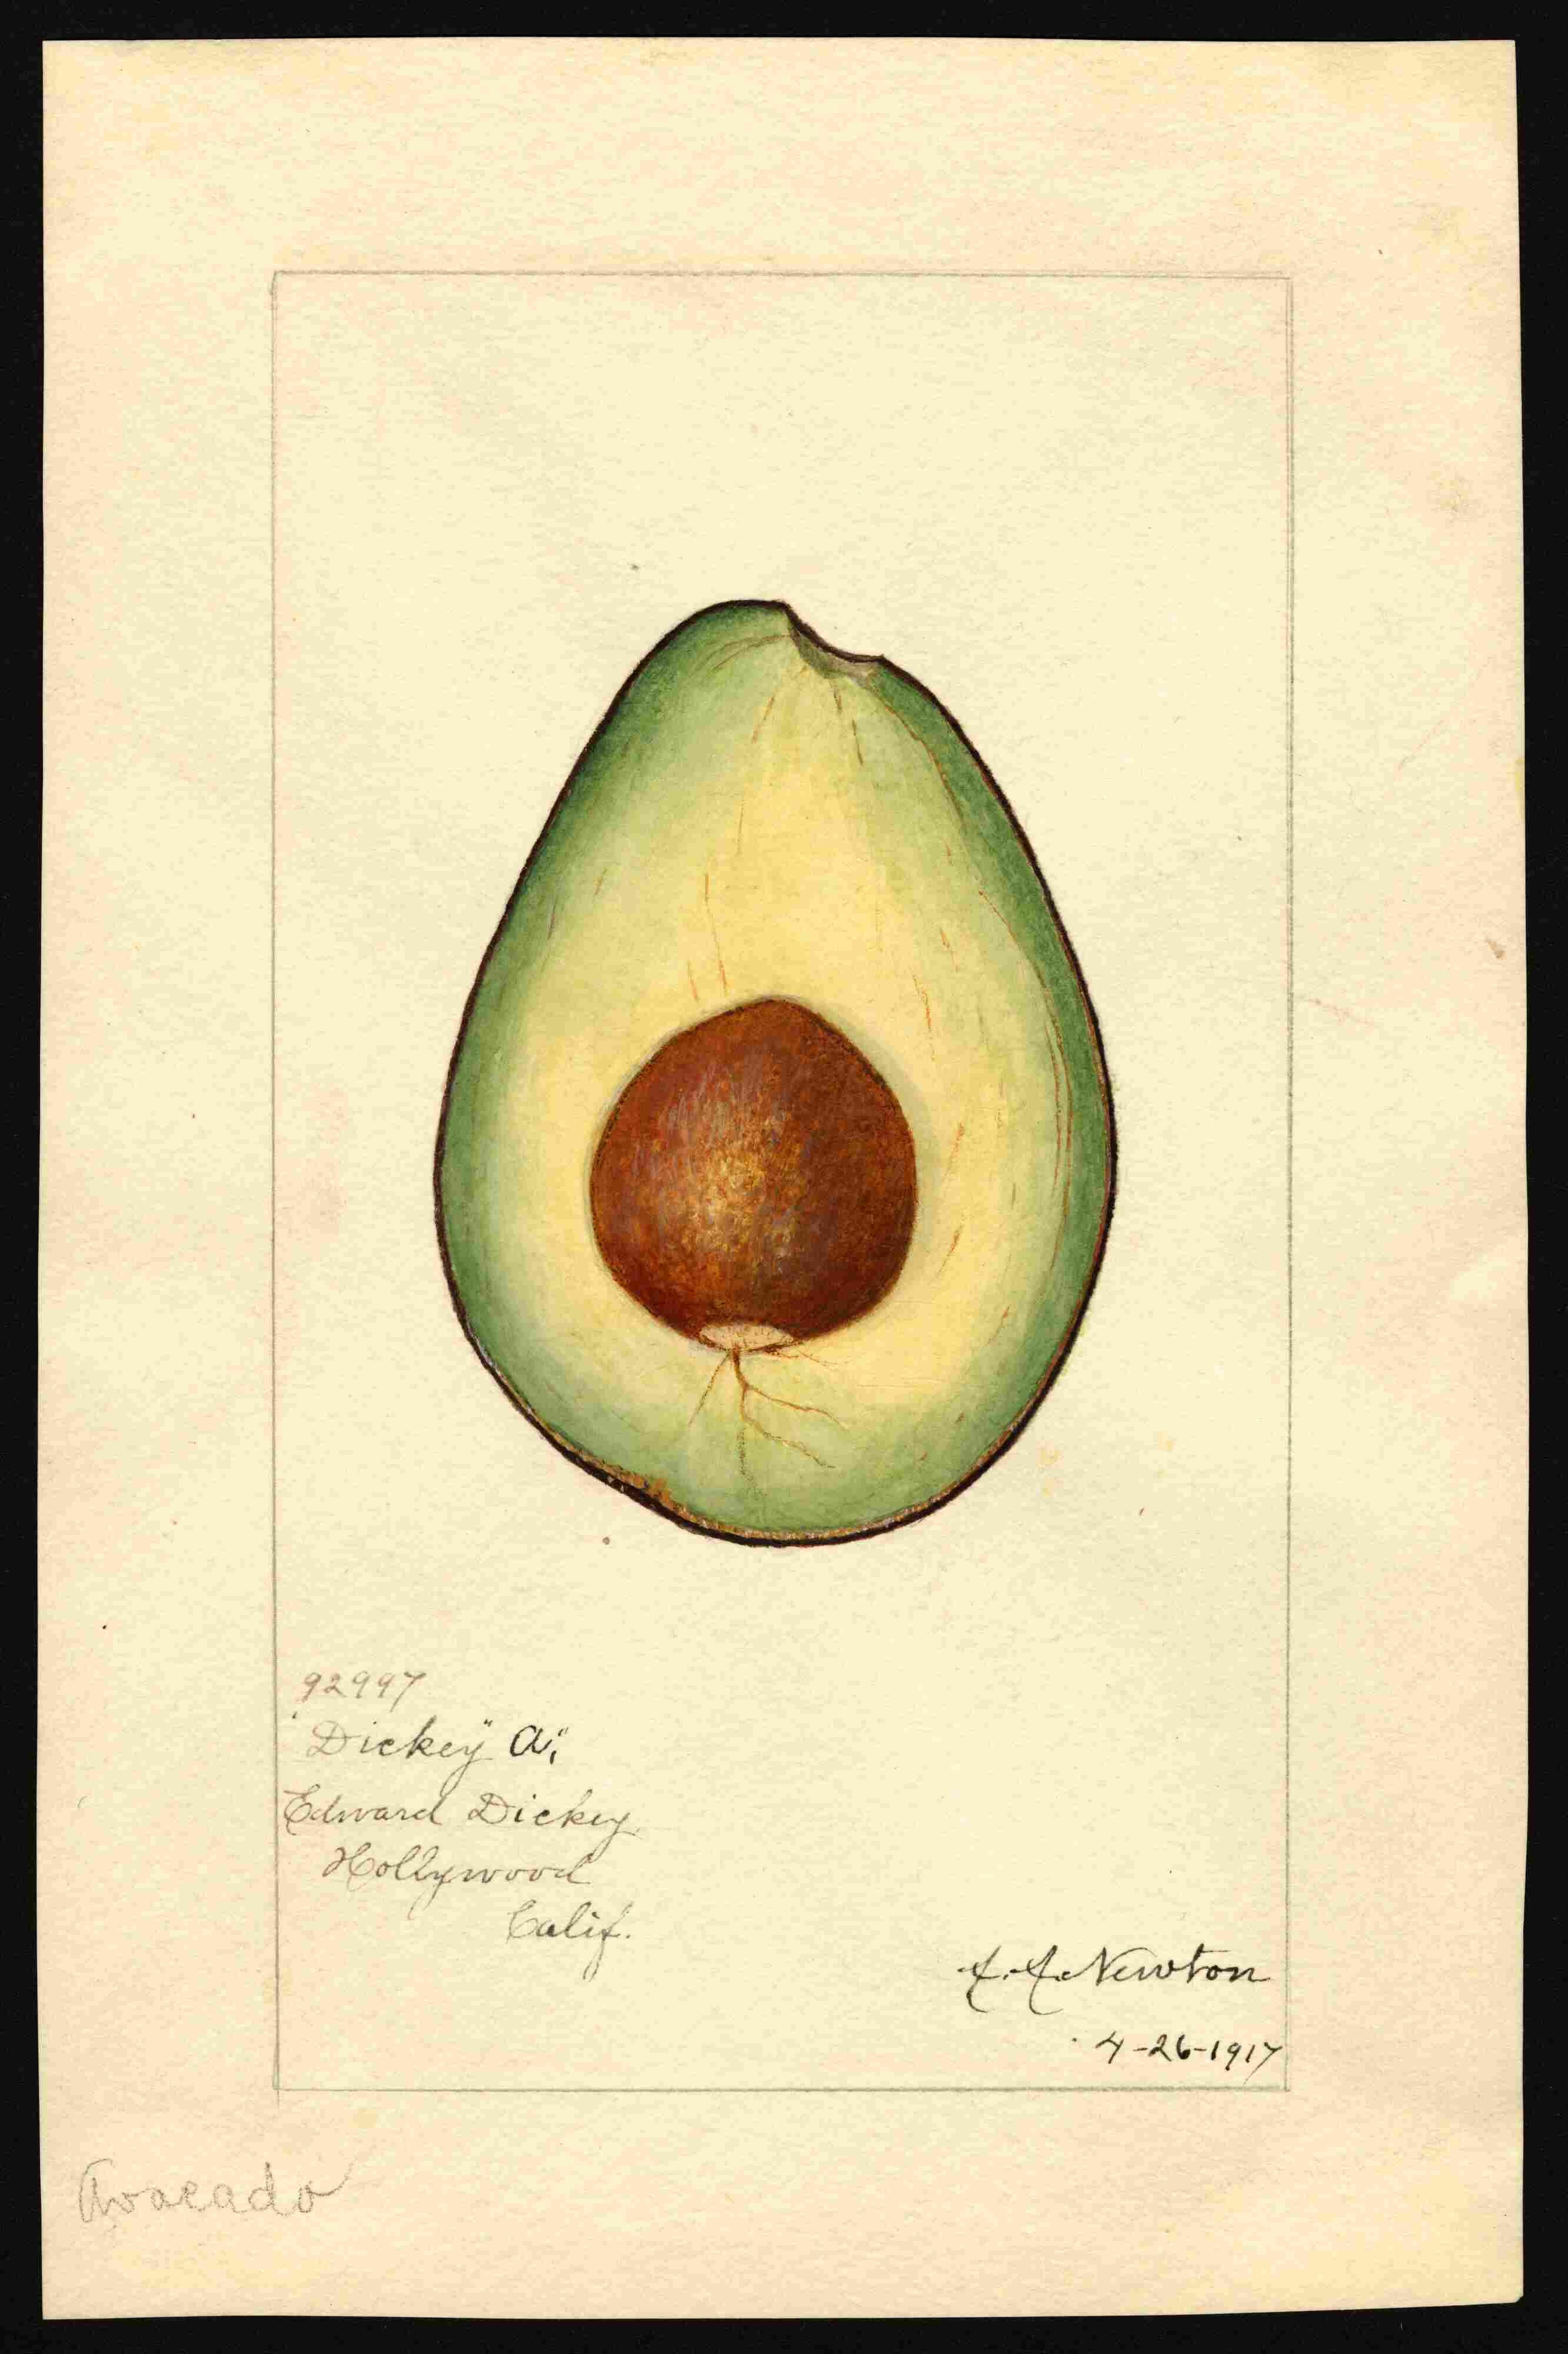 92997
"Dickey" A;"
Edward Dickey.
Hollywood
Calif.
A. A. Newton
4-26-1917
Avocado